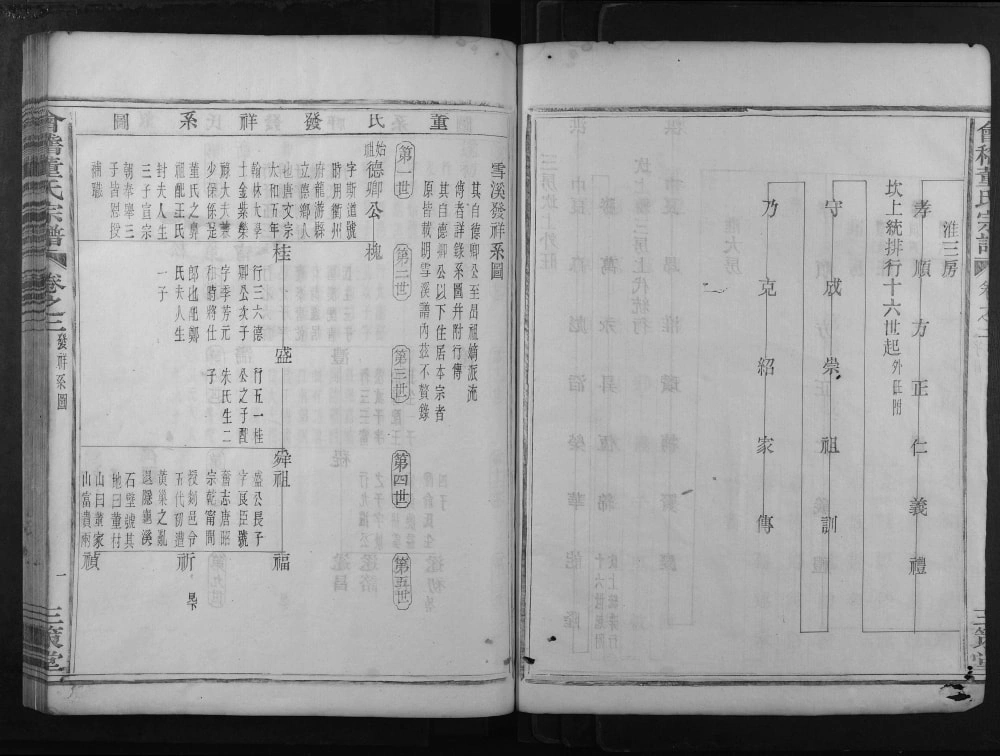 會稽董氏宗譜
淮三房
坎上統排行十六世起外旺附
孝順方正仁義禮
守成崇祖訓
乃克紹家傳
三策堂
董氏發祥系圖
雪溪發祥系圖
其自德卿公至昌祖嫡派流
傳者詳錄系圖并附行傳
其自德卿公以下住居本宗者
原皆載明雪溪譜內茲不贅錄
第一世
第二世
第三世
第四世
第五世
始祖德卿公
字斯道號
時用衢州
府龍游縣
立德鄉人
也唐文宗
太和五年
翰林大學
土金紫榮
祿大夫兼
少保係是
董氏之鼻
祖配王氏
封夫人生
三子宣宗
朝奉舉三
子皆恩授
補職
槐
桂
行三六德
卿公次子
字季芳元
和時將仕
郎也配鄭
氏夫人生
一子
盛
行五一桂
公之子配
朱氏生二
子
舜祖
盛公長子
字良臣號
奮志唐昭
宗乾甯間
授剡邑令
五代初遭
黃巢之亂
退隱龜溪
石壁號其
地曰董村
山曰董家
山富貴兩
福
祈
禎
會稽董氏宗譜
卷之三
發祥系圖
一
三策堂